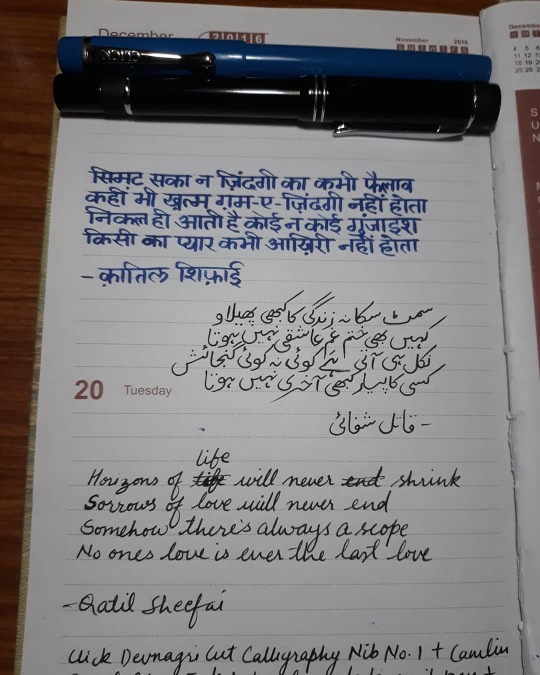 December 2016
November 2016
सिमट सका न ज़िंदगी का कभी फैलाव
कहीं भी ख़त्म ग़म-ए-ज़िंदगी नहीं होता
निकल ही आती है कोई न कोई गुंजाइश
किसी का प्यार कभी आख़िरी नहीं होता
- क़ातिल शिफ़ाई
سمٹ سکا نہ زندگی کا کبھی پھیلاو
کہیں بھی ختم غم عاشقی نہیں ہوتا
نکل ہی آتی ہے کوئی نہ کوئی گنجائش
کسی کا پیار کبھی آخری نہیں ہوتا
- قاتل شفائی
20 Tuesday
life
Horizons of life will never end shrink
Sorrows of love will never end
Somehow there's always a scope
No ones love is ever the last love
- Qatil Sheefai
Click Devnagri Cut Calligraphy Nib No. 1 + Camlin